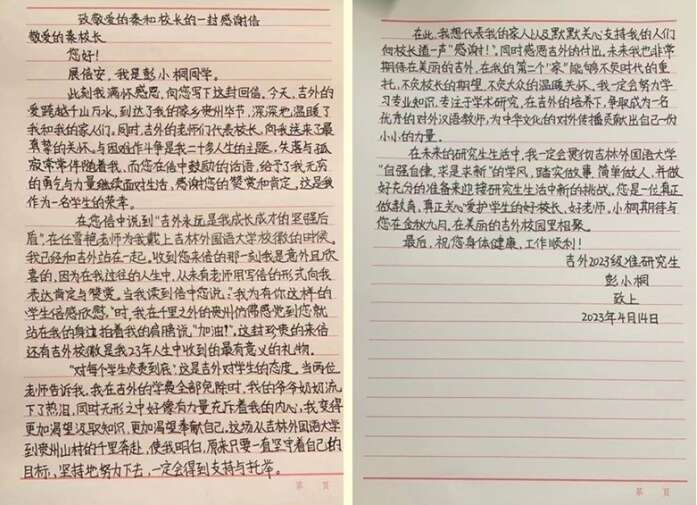 致敬爱的秦和校长的一封感谢信
敬爱的秦校长
您好！
展信安，我是彭小桐同学。
此刻我满怀感恩，向您写下这封回信。今天，吉外的
爱跨越千山万水，到达了我的家乡贵州毕节，深深地温暖了
我和我的家人们。同时，吉外的老师们代表校长，向我送来了最
真挚的关怀。与困难作斗争是我二十多人生的主题，失落与孤
寂常常伴随着我，而您在信中鼓励的话语，给予了我无穷
的勇气与力量继续面对生活，感谢您的赞赏和肯定，这是我
作为一名学生的荣幸。
在您信中说到“吉外永远是我成长成才的坚强后
盾”，在任雪艳老师为我戴上吉林外国语大学校徽的时候，
我已经和吉外站在一起。收到您来信的那一刻我是意外且欣
喜的，因为在我过往的人生中，从未有老师用写信的形式向我
表达肯定与赞赏。当我读到信中您说：“我为有你这样的
学生倍感欣慰，”时，我在千里之外的贵州仿佛感觉到您就
站在我的身边拍着我的肩膀说“加油！”，这封珍贵的来信
还有吉外校徽是我23年人生中收到的最有意义的礼物。
“对每个学生负责到底”，这是吉外对学生的态度。当两位
老师告诉我，我在吉外的学费全部免除时，我的爷爷奶奶流
下了热泪，同时无形之中好像有力量充斥着我的内心，我变得
更加渴望汲取知识，更加渴望奉献自己。这场从吉林外国语大学
到贵州山村的千里奔赴，使我明白，原来只要一直坚守着自己的
目标，坚持地努力下去，一定会得到支持与托举。
第 页
在此，我想代表我的家人以及默默关心支持我的人们
向校长道一声“感谢！”，同时感恩吉外的付出。未来我也非常
期待在美丽的吉外，在我的第二个“家”能够不负时代的重
托，不负校长的期望，不负大众的温暖关怀。我一定会努力学
习专业知识，专注于学术研究，在吉外的培养下，争取成为一名
优秀的对外汉语教师，为中华文化的对外传播贡献出自己一份
小小的力量。
在未来的研究生生活中，我一定会贯彻吉林外国语大学
“自强自律，求是求新”的学风，踏实做事，简单做人，并做
好充分的准备来迎接研究生生活中新的挑战。您是一位真正
做教育，真正关心爱护学生的好校长、好老师。小桐期待与
您在金秋九月，在美丽的吉外校园里相聚。
最后，祝您身体健康，工作顺利！
吉外2023级准研究生
彭小桐
致上
2023年4月14日
第 页